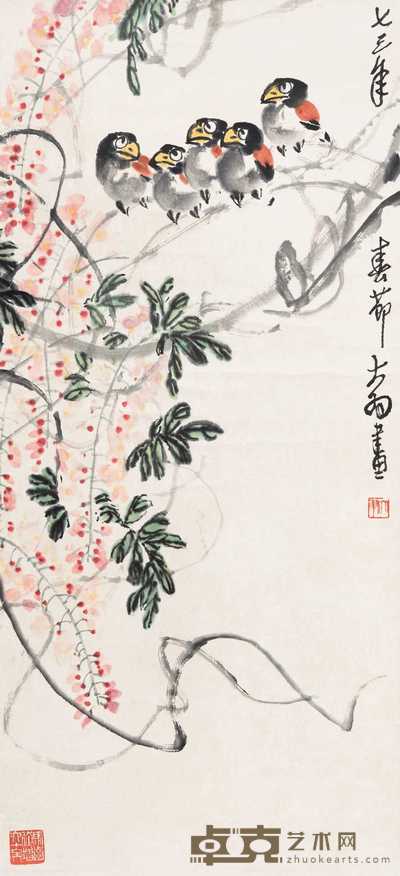 七三年
春节大羽畫
卓克艺术网
zhuokearts.com